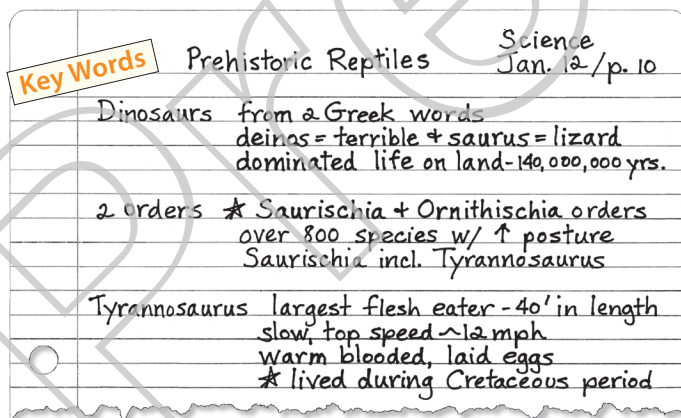 Key Words
Prehistoric Reptiles
Science
Jan. 12/p. 10
Dinosaurs from 2 Greek words
deinos = terrible + saurus = lizard
dominated life on land - 140,000,000 yrs.
2 orders ☆ Saurischia + Ornithischia orders
over 800 species w/ ↑ posture
Saurischia incl. Tyrannosaurus
Tyrannosaurus largest flesh eater - 40' in length
slow, top speed ~12 mph
warm blooded, laid eggs
☆ lived during Cretaceous period